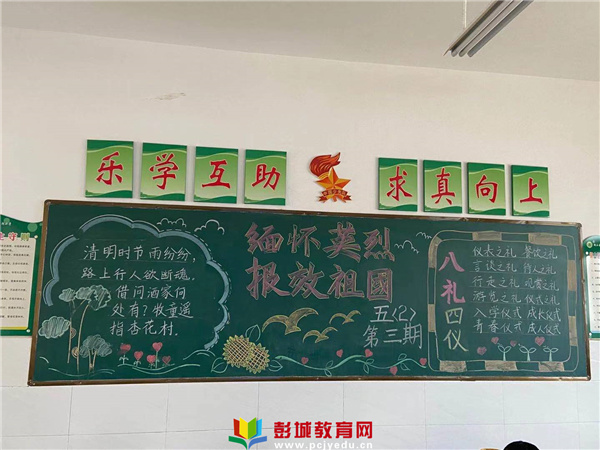 乐学互助
求真向上
清明时节雨纷纷，
路上行人欲断魂。
借问酒家何
处有？牧童遥
指杏花村.
缅怀英烈
报效祖國
五〈2〉
第三期
八礼四仪
仪表之礼 餐饮之礼
言谈之礼 待人之礼
行走之礼 观赏之礼
游览之礼 仪式之礼
入学仪式 成长仪式
青春仪式 成人仪式
彭城教育网
www.pcjyedu.cn